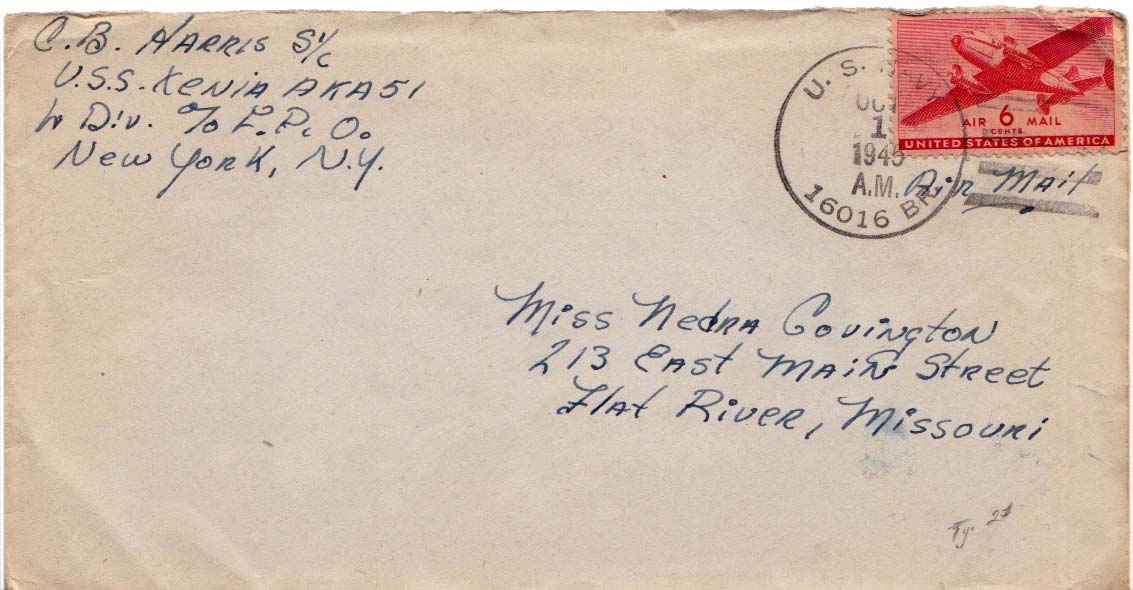 C.B. Harris S1/c
U.S.S. Xenia AKA51
Div. c/o F.P.O.
New York, N.Y.
U. S. NAVY
1945
A.M.
16016 BR.
AIR 6 MAIL
CENTS
UNITED STATES OF AMERICA
Air Mail
Miss Nedra Covington
213 East Main Street
Flat River, Missouri